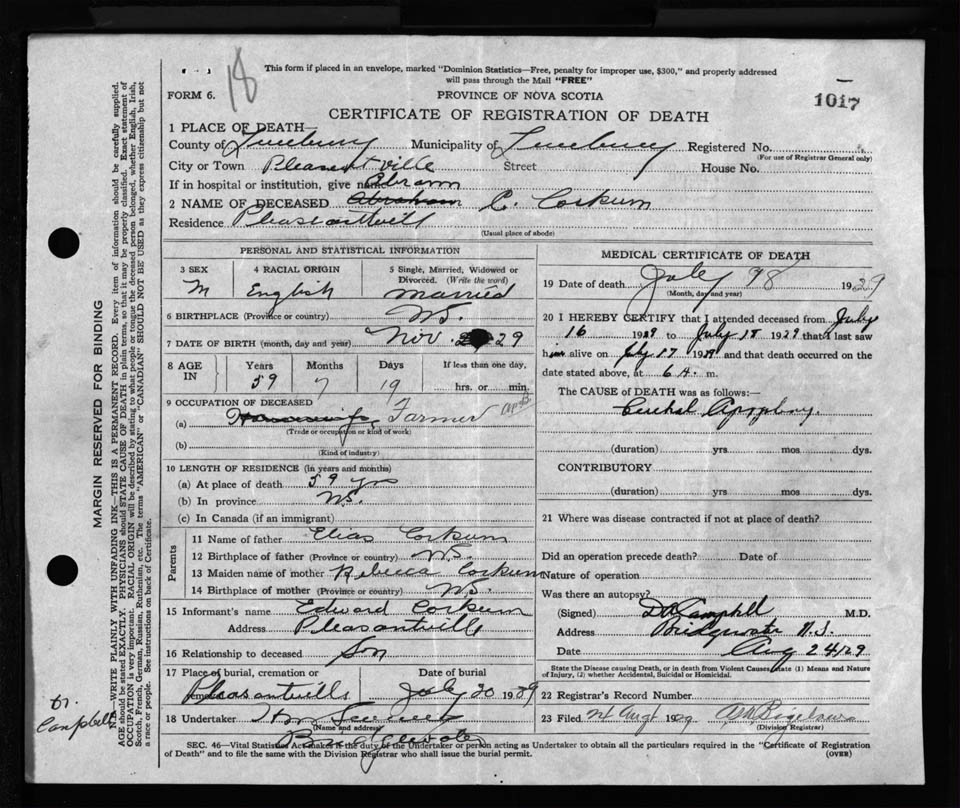 This form if placed in an envelope, marked "Dominion Statistics—Free, penalty for improper use, $300," and properly addressed
will pass through the Mail "FREE"
18
FORM 6.
PROVINCE OF NOVA SCOTIA
1017
CERTIFICATE OF REGISTRATION OF DEATH
1 PLACE OF DEATH—
County of Lunenburg Municipality of Lunenburg Registered No.
(For use of Registrar General only)
City or Town Pleasantville Street House No.
If in hospital or institution, give name
2 NAME OF DECEASED Abraham C. Corkum
Residence Pleasantville
(Usual place of abode)
PERSONAL AND STATISTICAL INFORMATION
3 SEX 4 RACIAL ORIGIN 5 Single, Married, Widowed or
Divorced. (Write the word)
M English Married
6 BIRTHPLACE (Province or country) N.S.
7 DATE OF BIRTH (month, day and year) Nov. 29
8 AGE IN Years Months Days If less than one day,
59 7 19 hrs. or min.
9 OCCUPATION OF DECEASED
(a) Housewife Farmer
(Trade or occupation or kind of work)
(b)
(Kind of industry)
10 LENGTH OF RESIDENCE (in years and months)
(a) At place of death 59 yrs
(b) In province N.S.
(c) In Canada (if an immigrant)
Parents
11 Name of father Elias Corkum
12 Birthplace of father (Province or country) N.S.
13 Maiden name of mother Rebecca Corkum
14 Birthplace of mother (Province or country) N.S.
15 Informant's name Edward Corkum
Address Pleasantville
16 Relationship to deceased Son
17 Place of burial, cremation or Date of burial
Pleasantville July 20 1929
18 Undertaker
(Name and address)
Bridgewater
MEDICAL CERTIFICATE OF DEATH
19 Date of death July 18 1929
(Month, day and year)
20 I HEREBY CERTIFY that I attended deceased from July
16 1929 to July 18 1929 that I last saw
him alive on July 17 1929 and that death occurred on
date stated above, at 6 A. m.
The CAUSE OF DEATH was as follows:—
(duration) yrs mos dys.
CONTRIBUTORY
(duration) yrs mos dys.
21 Where was disease contracted if not at place of death?
Did an operation precede death? Date of
Nature of operation
Was there an autopsy?
(Signed) Campbell M.D.
Address Bridgewater N.S.
Date Aug 24/29
State the Disease causing Death, or in death from Violent Causes state (1) Means and Nature
of Injury, (2) whether Accidental, Suicidal or Homicidal.
22 Registrar's Record Number
23 Filed 24 Augt 1929
(Division Registrar)
SEC. 46—Vital Statistics Act makes it the duty of the Undertaker or person acting as Undertaker to obtain all the particulars required in the "Certificate of Registration
of Death" and to file the same with the Division Registrar who shall issue the burial permit.
(OVER)
MARGIN RESERVED FOR BINDING
N.B.—WRITE PLAINLY WITH UNFADING INK—THIS IS A PERMANENT RECORD. Every item of information should be carefully supplied.
AGE should be stated EXACTLY. PHYSICIANS should STATE CAUSE OF DEATH in plain terms, so that it may be properly classified. Exact statement of
OCCUPATION is very important. RACIAL ORIGIN will be described by stating to what people or tongue the deceased person belonged, whether English, Irish,
Scotch, French, German, Russian, Ruthenian, etc. The terms "AMERICAN" or "CANADIAN" SHOULD NOT BE USED as they express citizenship but not
a race or people. See instructions on back of Certificate.
Dr.
Campbell